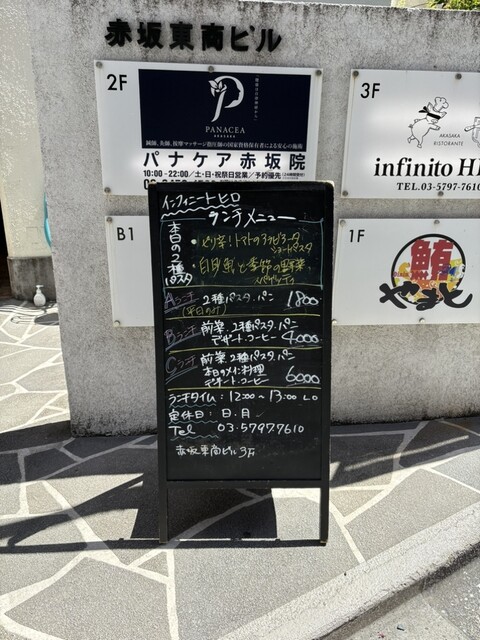 赤坂東商ビル
2F
PANACEA
AKASAKA
鍼師、灸師、按摩マッサージ指圧師の国家資格保有者による安心の施術
パナケア赤坂院
10:00-22:00/土・日・祝祭日営業/予約優先
3F
AKASAKA
RISTORANTE
infinito H
TEL.03-5797-761
B1
1F
鮪
やまと
インフィニートヒロ
ランチメニュー
本日の2種パスタ
・ピリ辛!トマトのアラビアータ
ショートパスタ
・白身魚と季節の野菜
スパゲッティ
Aランチ 2種パスタ.パン 1800
(平日のみ)
Bランチ 前菜.2種パスタ.パン
デザート.コーヒー 4000
Cランチ 前菜.2種パスタ.パン
本日のメイン料理
デザート.コーヒー 6000
ランチタイム:12:00〜13:00 LO
定休日:日.月
Tel 03-57977610
赤坂東商ビル3F